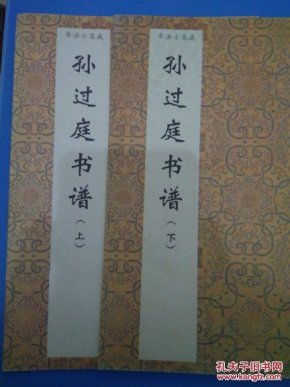 书法小集成
孙过庭书谱
（上）
书法小集成
孙过庭书谱
（下）
孔夫子旧书网